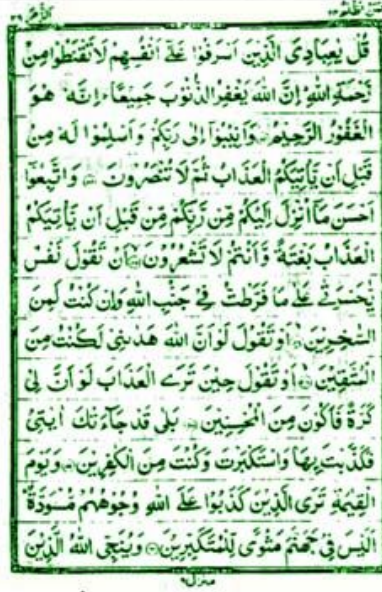 قُلْ يٰعِبَادِىَ الَّذِيْنَ اَسْرَفُوْا عَلٰٓى اَنْفُسِهِمْ لَا تَقْنَطُوْا مِنْ
رَّحْمَةِ اللّٰهِ اِنَّ اللّٰهَ يَغْفِرُ الذُّنُوْبَ جَمِيْعًا اِنَّهٗ هُوَ
الْغَفُوْرُ الرَّحِيْمُ وَاَنِيْبُوْٓا اِلٰى رَبِّكُمْ وَاَسْلِمُوْا لَهٗ مِنْ
قَبْلِ اَنْ يَّاْتِيَكُمُ الْعَذَابُ ثُمَّ لَا تُنْصَرُوْنَ وَاتَّبِعُوْٓا
اَحْسَنَ مَآ اُنْزِلَ اِلَيْكُمْ مِّنْ رَّبِّكُمْ مِّنْ قَبْلِ اَنْ يَّاْتِيَكُمُ
الْعَذَابُ بَغْتَةً وَّاَنْتُمْ لَا تَشْعُرُوْنَ اَنْ تَقُوْلَ نَفْسٌ
يّٰحَسْرَتٰى عَلٰى مَا فَرَّطْتُّ فِيْ جَنْۢبِ اللّٰهِ وَاِنْ كُنْتُ لَمِنَ
السّٰخِرِيْنَ اَوْ تَقُوْلَ لَوْ اَنَّ اللّٰهَ هَدٰىنِيْ لَكُنْتُ مِنَ
الْمُتَّقِيْنَ اَوْ تَقُوْلَ حِيْنَ تَرَى الْعَذَابَ لَوْ اَنَّ لِيْ
كَرَّةً فَاَكُوْنَ مِنَ الْمُحْسِنِيْنَ بَلٰى قَدْ جَآءَتْكَ اٰيٰتِيْ
فَكَذَّبْتَ بِهَا وَاسْتَكْبَرْتَ وَكُنْتَ مِنَ الْكٰفِرِيْنَ وَيَوْمَ
الْقِيٰمَةِ تَرَى الَّذِيْنَ كَذَبُوْا عَلَى اللّٰهِ وُجُوْهُهُمْ مُّسْوَدَّةٌ
اَلَيْسَ فِيْ جَهَنَّمَ مَثْوًى لِّلْمُتَكَبِّرِيْنَ وَيُنَجِّى اللّٰهُ الَّذِيْنَ